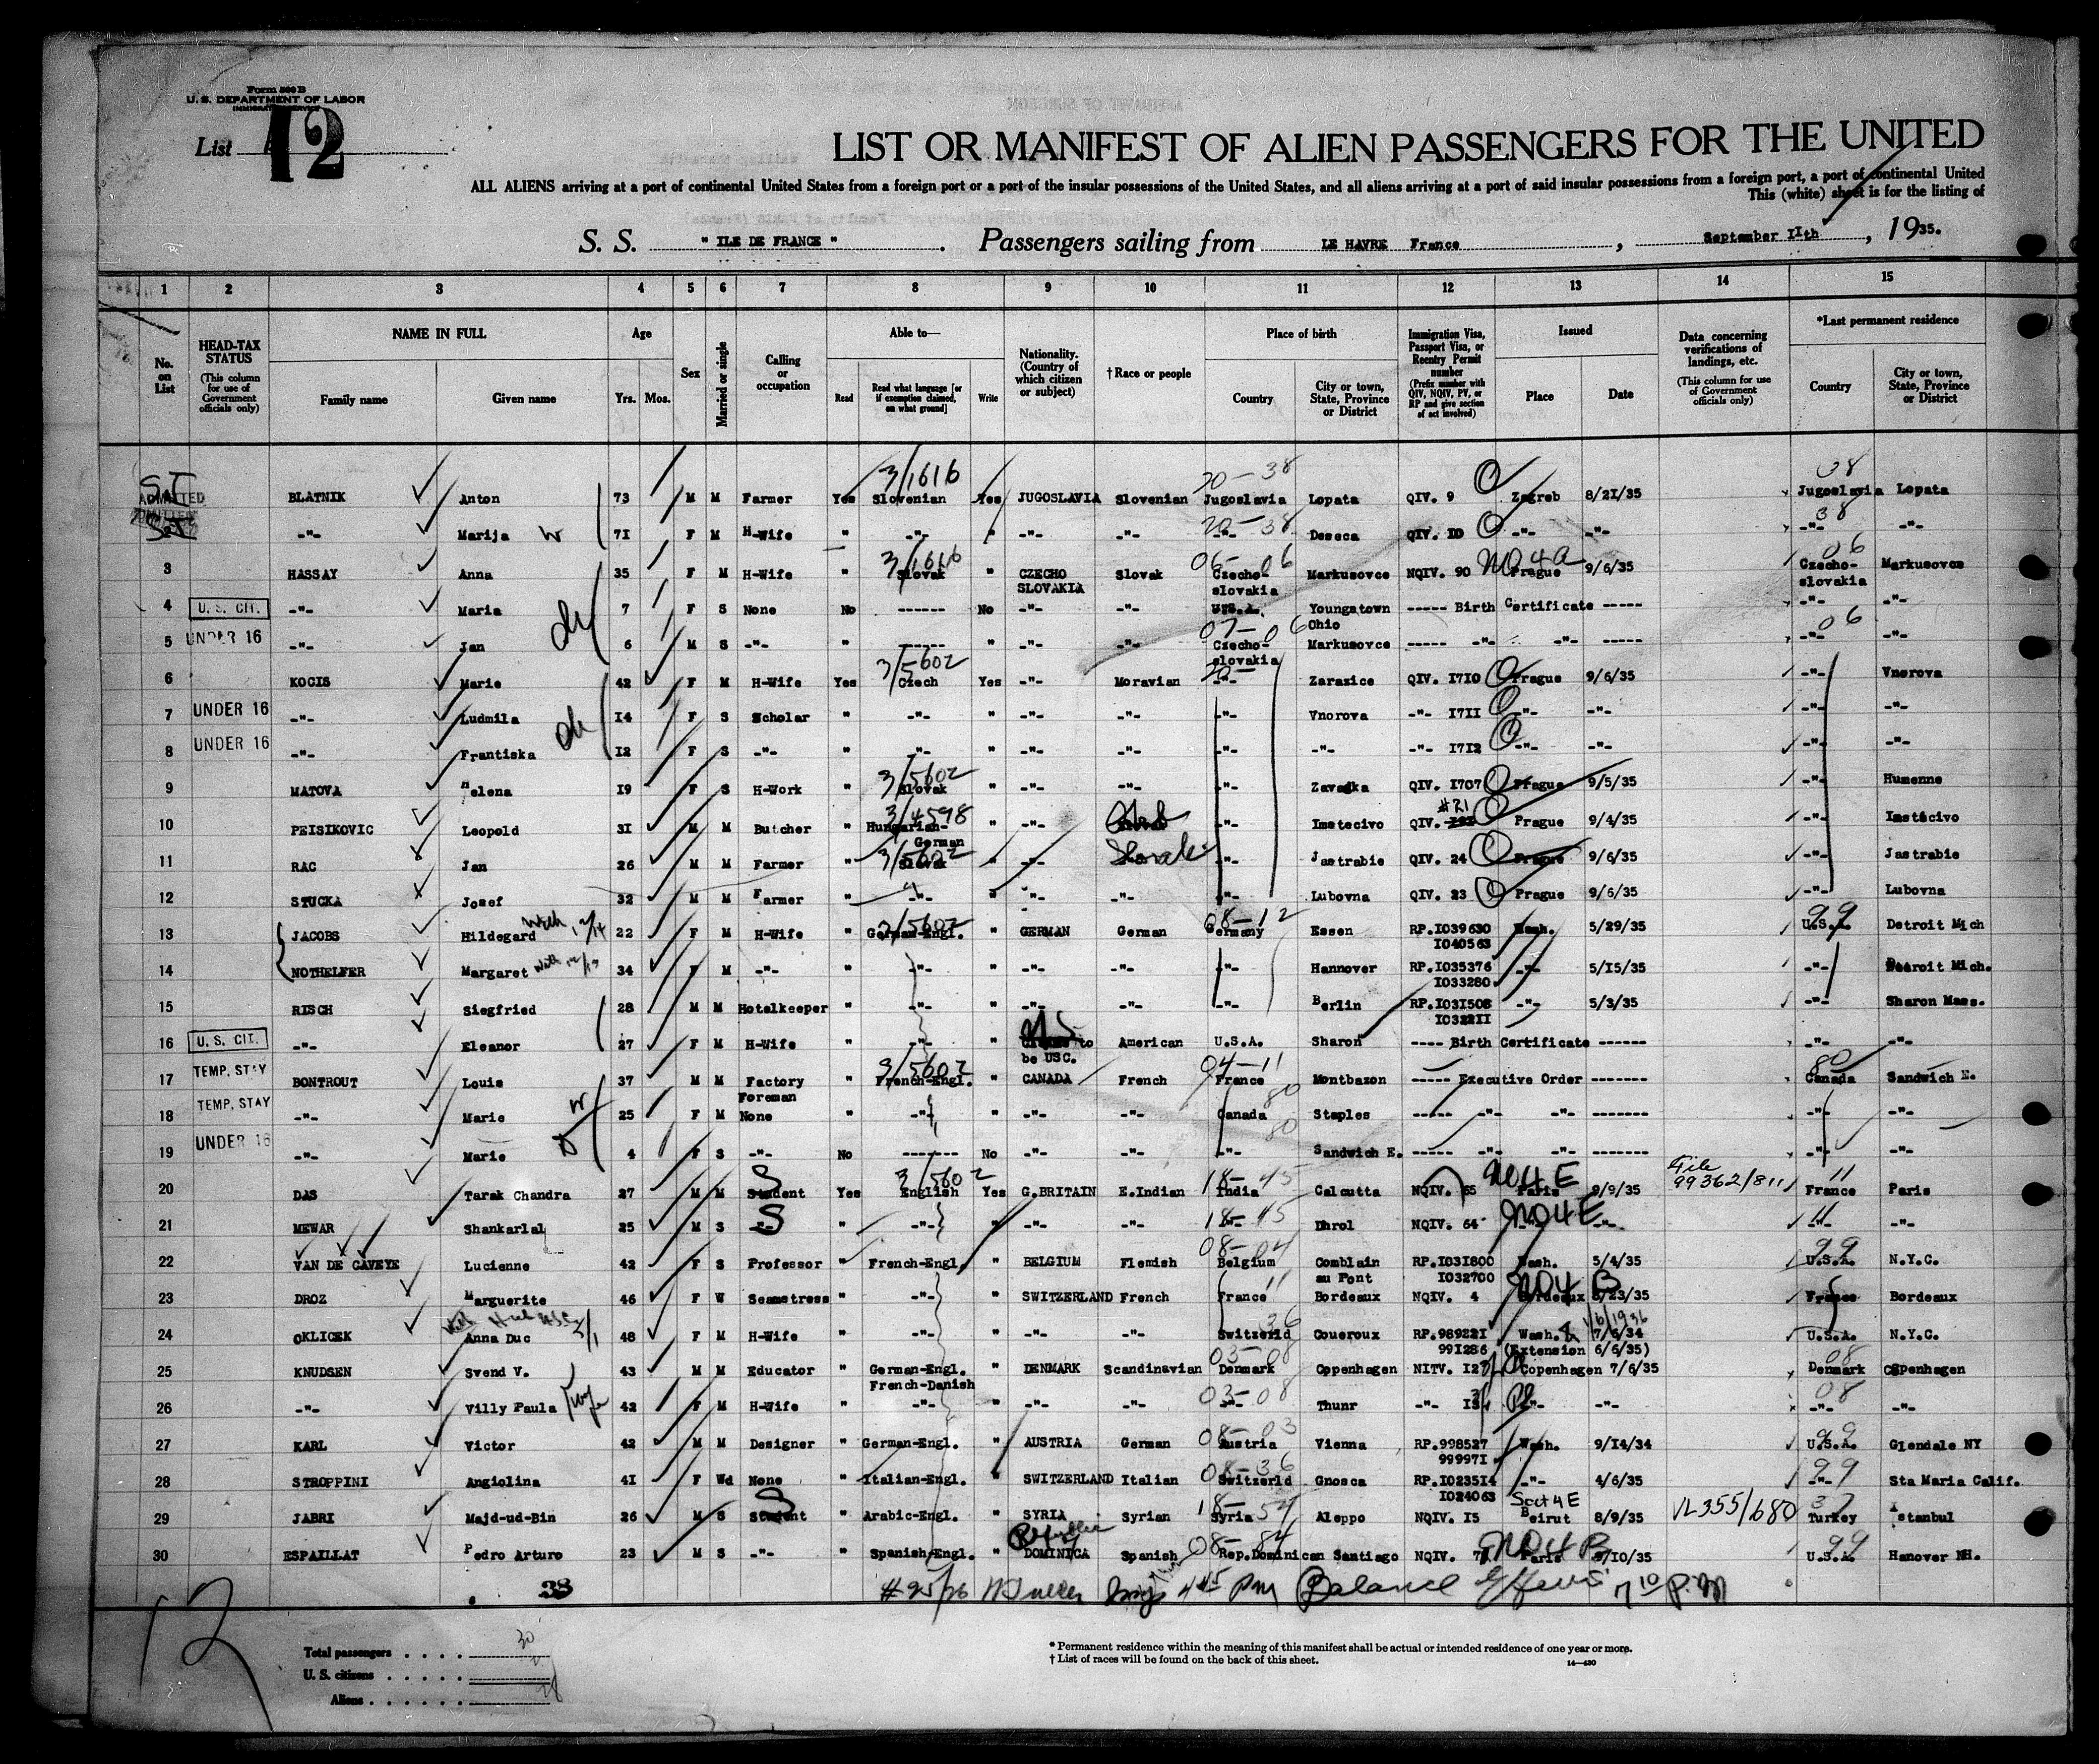 Form 500 B
U. S. DEPARTMENT OF LABOR
IMMIGRATION SERVICE
List 12
LIST OR MANIFEST OF ALIEN PASSENGERS FOR THE UNITED
ALL ALIENS arriving at a port of continental United States from a foreign port or a port of the insular possessions of the United States, and all aliens arriving at a port of said insular possessions from a foreign port, a port of continental United
This (white) sheet is for the listing of
S. S. " ILE DE FRANCE ". Passengers sailing from LE HAVRE France, September IIth, 1935.
1 2 3 4 5 6 7 8 9 10 11 12 13 14 15
No. on List
HEAD-TAX STATUS (This column for use of Government officials only)
NAME IN FULL Family name Given name
Age Yrs. Mos.
Sex
Married or single
Calling or occupation
Able to— Read Read what language [or if exemption claimed, on what ground] Write
Nationality. (Country of which citizen or subject)
†Race or people
Place of birth Country City or town, State, Province or District
Immigration Visa, Passport Visa, or Reentry Permit number (Prefix number with QIV, NQIV, PV, or RP and give section of act involved)
Issued Place Date
Data concerning verifications of landings, etc. (This column for use of Government officials only)
*Last permanent residence Country City or town, State, Province or District
3/1616 20-38 38
ADMITTED BLATNIK Anton 73 M M Farmer Yes Slovenian Yes JUGOSLAVIA Slovenian Jugoslavia Lopata QIV. 9 Zagreb 8/21/35 Jugoslavia Lopata
20-38 38
-"- Marija W 71 F M H-Wife " -"- " -"- -"- -"- Deseca QIV. IO -"- -"- -"- -"-
3/1616 06-06 NO 4a 06
3 HASSAY Anna 35 F M H-Wife " Slovak " CZECHO SLOVAKIA Slovak Czecho-slovakia Markusovce NQIV. 90 Prague 9/6/35 Czecho-slovakia Markusovce
4 U. S. CIT. -"- Maria 7 F S None No ------ No -"- -"- U.S.A. Youngstown Ohio ----- Birth Certificate ----- -"- -"-
07-06 06
5 UNDER 16 -"- Jan 6 M S -"- " ----- " -"- -"- Czecho-slovakia Markusovce ----- -"- -"- ----- -"- -"-
3/5602 20-
6 KOCIS Marie 42 F M H-Wife Yes Czech Yes -"- Moravian -"- Zarazice QIV. I7I0 Prague 9/6/35 -"- Vnorova
7 UNDER 16 -"- Ludmila I4 F S Scholar " -"- " -"- -"- -"- Vnorova -"- I7II -"- -"- -"- -"-
8 UNDER 16 -"- Frantiska I2 F S -"- " -"- " -"- -"- -"- -"- -"- I7I2 -"- -"- -"- -"-
3/5602
9 MATOVA Helena I9 F S H-Work " Slovak " -"- -"- -"- Zavadka QIV. I707 Prague 9/5/35 -"- Humenne
3/4598 #21
10 PEISIKOVIC Leopold 3I M M Butcher " Hungarian-German " -"- -"- Imstecivo QIV. Prague 9/4/35 -"- Imstecivo
3/5602
11 RAC Jan 26 M M Farmer " Slovak " -"- Slovak -"- Jastrabie QIV. 24 Prague 9/6/35 -"- Jastrabie
12 STUCKA Josef 32 M M Farmer " -"- " -"- -"- -"- Lubovna QIV. 23 Prague 9/6/35 -"- Lubovna
3/5602 08-12 99
13 JACOBS Hildegard with 12/14 22 F M H-Wife " German-Engl. " GERMAN German Germany Essen RP.I039630 I040563 Wash. 5/29/35 U.S.A. Detroit Mich
14 NOTHELFER Margaret with 12/13 34 F M -"- " -"- " -"- -"- -"- Hannover RP.I035376 I033280 -"- 5/I5/35 -"- Detroit Mich.
15 RISCH Siegfried 28 M M Hotelkeeper " -"- " -"- -"- -"- Berlin RP.I03I508 I0322II -"- 5/3/35 -"- Sharon Mass.
16 U. S. CIT. -"- Eleanor 27 F M H-Wife " -"- " Claims to be USC. American U.S.A. Sharon ---- Birth Certificate ------ -"- -"-
3/5602 04-11 80
17 TEMP. STAY BONTROUT Louis 37 M M Factory Foreman " French-Engl. " CANADA French France Montbazon ----- Executive Order ------- Canada Sandwich E.
80
18 TEMP. STAY -"- Marie W 25 F M None " -"- " -"- -"- Canada Staples ----- -"- -"- ------- -"- -"-
80
19 UNDER 16 -"- Marie D 4 F S -"- No ------- No -"- -"- -"- Sandwich E. ----- -"- -"- ------- -"- -"-
3/5602 18-45 NO4E File 99362/811 11
20 DAS Tarak Chandra 27 M M Student Yes English Yes G.BRITAIN E.Indian India Calcutta NQIV. 65 Paris 9/9/35 France Paris
18-45 NO4E 11
21 MEWAR Shankarlal 25 M S S " -"- " -"- -"- -"- Dhrol NQIV. 64 -"- -"- -"-
08-04 99
22 VAN DE CAVEYE Lucienne 42 F S Professor " French-Engl. " BELGIUM Flemish Belgium Comblain au Pont RP.I03I800 I032700 Wash. 5/4/35 U.S.A. N.Y.C.
11 NO4 B
23 DROZ Marguerite 46 F W Seamstress " -"- " SWITZERLAND French France Bordeaux NQIV. 4 Bordeaux 8/23/35 France Bordeaux
36 1/6/1936
24 OKLICEK Anna Duc 48 F M H-Wife " -"- " -"- -"- Switzerld Coueroux RP.98922I 99I286 Wash. & 7/6/34 (Extension 6/6/35) U.S.A. N.Y.C.
03-08 08
25 KNUDSEN Svend V. 43 M M Educator " German-Engl. French-Danish " DENMARK Scandinavian Denmark Coppenhagen NITV. I2 Copenhagen 7/6/35 Denmark Copenhagen
03-08 08
26 -"- Villy Paula wife 42 F M H-Wife " -"- " -"- -"- -"- Thunr -"- I3 -"- -"- -"- -"-
08-03 99
27 KARL Victor 42 M M Designer " German-Engl. " AUSTRIA German Austria Vienna RP.998527 99997I Wash. 9/I4/34 U.S.A. Glendale NY
08-36 99
28 STROPPINI Angiolina 4I F Wd None " Italian-Engl. " SWITZERLAND Italian Switzerld Gnosca RP.I0235I4 I024063 -"- 4/6/35 -"- Sta Maria Calif.
18-54 Sect 4E VL355/680 37
29 JABRI Majd-ud-Bin 26 M S Student " Arabic-Engl. " SYRIA Syrian Syria Aleppo NQIV. I5 Beirut 8/9/35 Turkey Istanbul
Republic 08-84 NO4 B 99
30 ESPAILLAT Pedro Arturo 23 M S -"- " Spanish-Engl. " DOMINICA Spanish Rep.Dominican Santiago NQIV. Paris 9/10/35 U.S.A. Hanover NH.
38 #25/26 445 pm Balance 7 10 P.M
12
Total passengers . . . . 30
U. S. citizens . . . . .
Aliens . . . . . . 28
* Permanent residence within the meaning of this manifest shall be actual or intended residence of one year or more.
† List of races will be found on the back of this sheet.
14—430